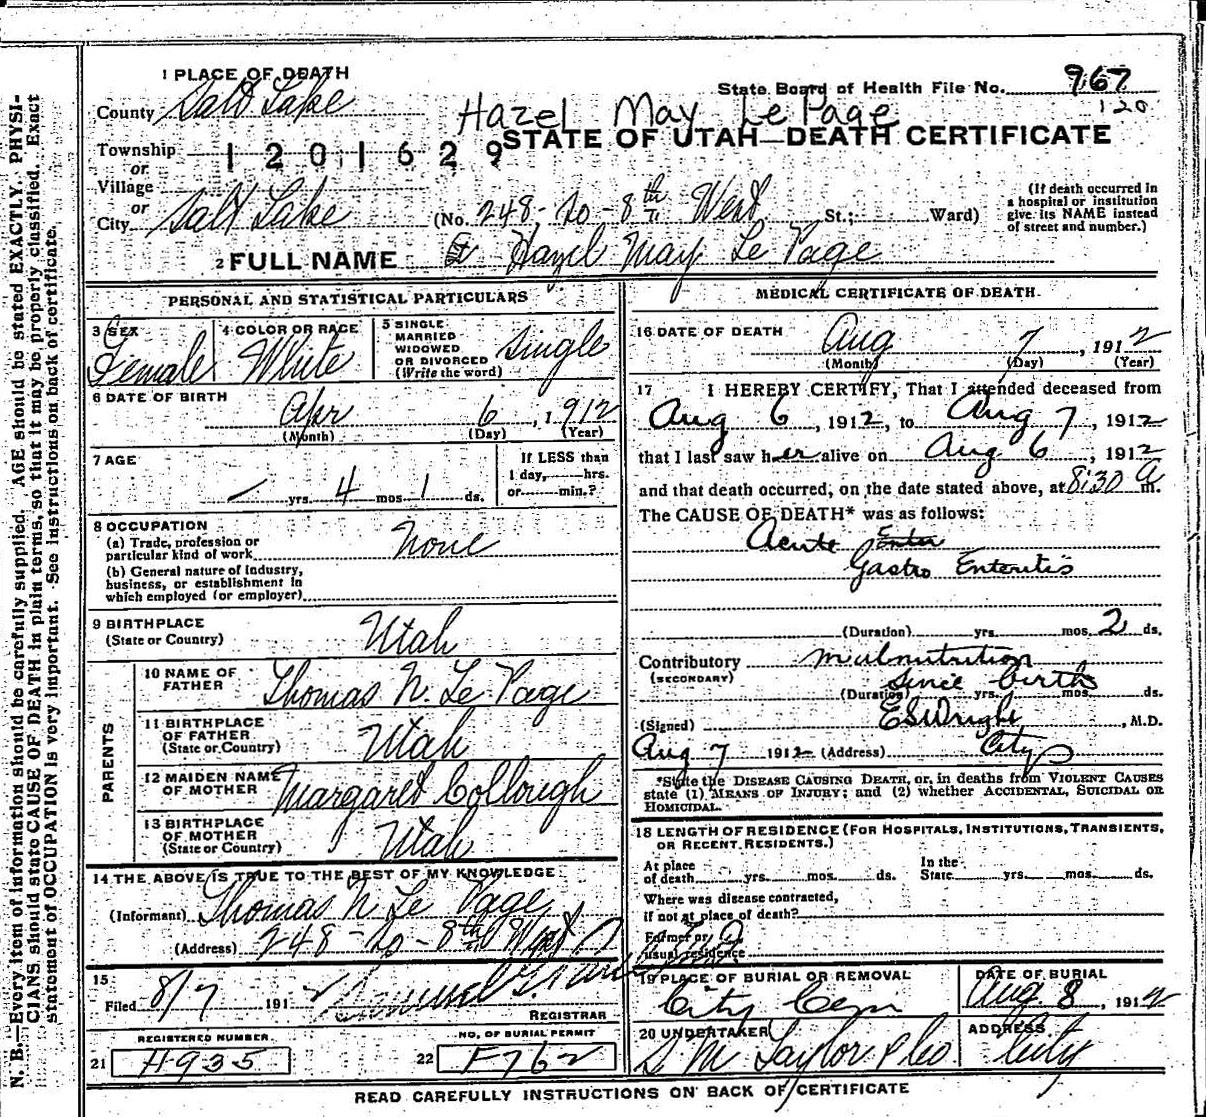 1 PLACE OF DEATH
State Board of Health File No. 967
120
County Salt Lake
Hazel May Le Page
STATE OF UTAH—DEATH CERTIFICATE
Township
1201629
or
Village
or
City Salt Lake (No. 248-So-8th West St.; Ward)
(If death occurred in a hospital or institution give its NAME instead of street and number.)
2 FULL NAME Hazel May Le Page
PERSONAL AND STATISTICAL PARTICULARS
3 SEX Female
4 COLOR OR RACE White
5 SINGLE MARRIED WIDOWED OR DIVORCED (Write the word) single
6 DATE OF BIRTH
Apr 6, 1912
(Month) (Day) (Year)
7 AGE
yrs. 4 mos. 1 ds.
If LESS than 1 day, hrs. or min.?
8 OCCUPATION
(a) Trade, profession or particular kind of work None
(b) General nature of Industry, business, or establishment in which employed (or employer)
9 BIRTHPLACE
(State or Country) Utah
PARENTS
10 NAME OF FATHER Thomas N. Le Page
11 BIRTHPLACE OF FATHER (State or Country) Utah
12 MAIDEN NAME OF MOTHER Margaret Collough
13 BIRTHPLACE OF MOTHER (State or Country) Utah
14 THE ABOVE IS TRUE TO THE BEST OF MY KNOWLEDGE
(Informant) Thomas N Le Page
(Address) 248-So-8th West
15
Filed 8/7 191
REGISTRAR
REGISTERED NUMBER
21 H935
NO. OF BURIAL PERMIT
22 F762
MEDICAL CERTIFICATE OF DEATH
16 DATE OF DEATH
Aug 7, 1912
(Month) (Day) (Year)
17 I HEREBY CERTIFY, That I attended deceased from
Aug 6, 1912, to Aug 7, 1912
that I last saw her alive on Aug 6, 1912
and that death occurred, on the date stated above, at 8:30 A m.
The CAUSE OF DEATH* was as follows:
Acute Enter
Gastro Enteritis
(Duration) yrs. mos. 2 ds.
Contributory malnutrition
(SECONDARY) since birth
(Duration) yrs. mos. ds.
(Signed) E S Wright, M.D.
Aug 7 1912 (Address) City
*State the DISEASE CAUSING DEATH, or, in deaths from VIOLENT CAUSES
state (1) MEANS OF INJURY; and (2) whether ACCIDENTAL, SUICIDAL OR
HOMICIDAL.
18 LENGTH OF RESIDENCE (FOR HOSPITALS, INSTITUTIONS, TRANSIENTS,
OR RECENT RESIDENTS.)
At place of death yrs. mos. ds. In the State yrs. mos. ds.
Where was disease contracted,
if not at place of death?
Former or
usual residence
19 PLACE OF BURIAL OR REMOVAL City Cem
DATE OF BURIAL Aug. 8, 1912
20 UNDERTAKER S M Taylor & Co
ADDRESS City
READ CAREFULLY INSTRUCTIONS ON BACK OF CERTIFICATE
N. B.—Every item of information should be carefully supplied. AGE should be stated EXACTLY. PHYSI-
CIANS should state CAUSE OF DEATH in plain terms, so that it may be properly classified. Exact
statement of OCCUPATION is very important. See instructions on back of certificate.